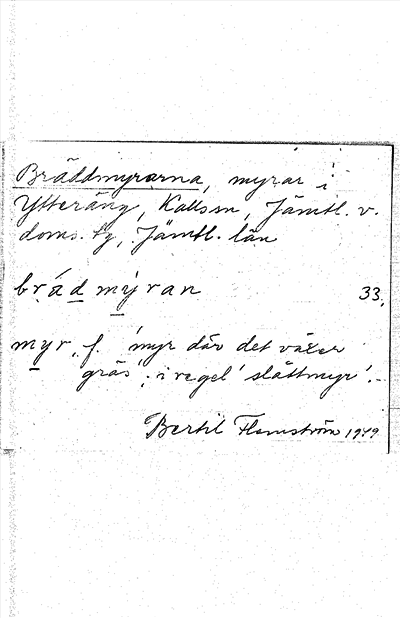 Bräddmyrarna, myrar i
Ytteräng, Kallssn, Jämtl. v.
doms. tg, Jämtl. län
brä́d mýran 33.
myr, f. 'myr där det växer
gräs'; i regel 'slåttmyr'.-
Bertil Flemström 1979